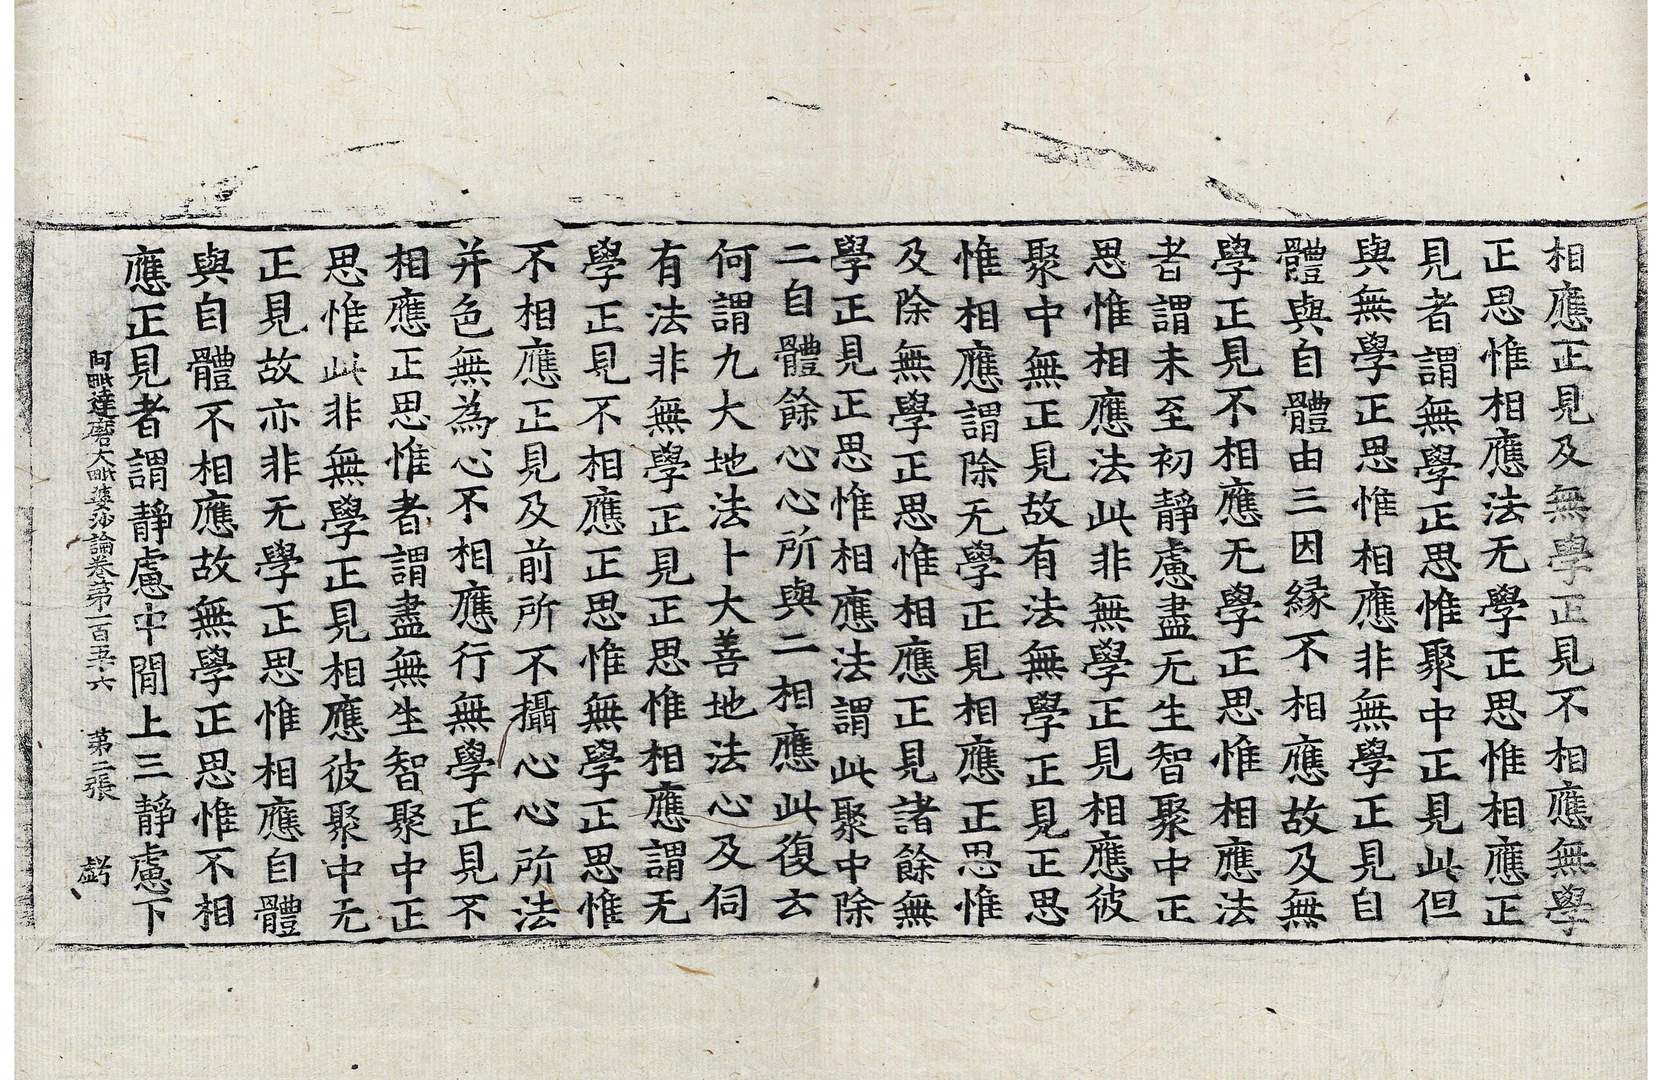 相應正見及無學正見不相應無學
正思惟相應法无學正思惟相應正
見者謂無學正思惟聚中正見此但
與無學正思惟相應非無學正見自
體與自體由三因緣不相應故及無
學正見不相應无學正思惟相應法
者謂未至初靜慮盡无生智聚中正
思惟相應法此非無學正見相應彼
聚中無正見故有法無學正見正思
惟相應謂除无學正見相應正思惟
及除無學正思惟相應正見諸餘無
學正見正思惟相應法謂此聚中除
二自體餘心心所與二相應此復云
何謂九大地法十大善地法心及伺
有法非無學正見正思惟相應謂无
學正見不相應正思惟無學正思惟
不相應正見及前所不攝心心所法
并色無為心不相應行無學正見不
相應正思惟者謂盡無生智聚中正
思惟此非無學正見相應彼聚中无
正見故亦非无學正思惟相應自體
與自體不相應故無學正思惟不相
應正見者謂靜慮中間上三靜慮下
阿毗達磨大毗婆沙論卷第一百五十六 第二張 虧